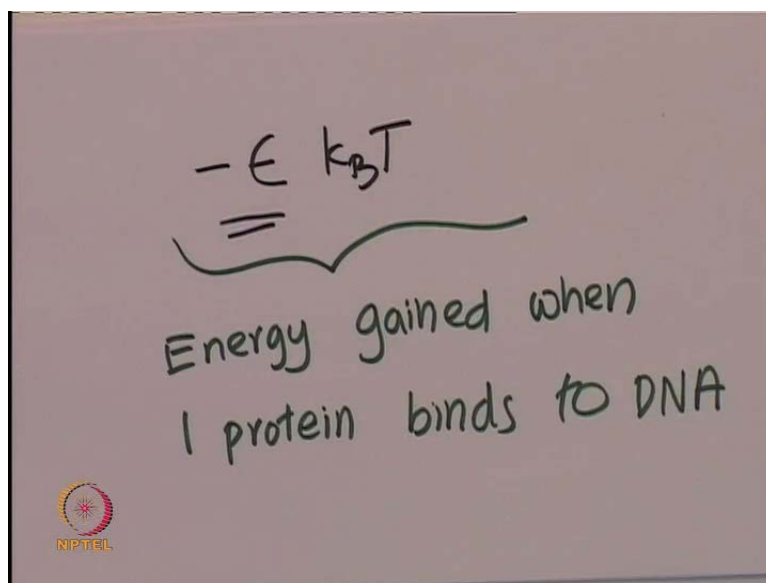 -ϵ k_BT
Energy gained when
1 protein binds to DNA
NPTEL